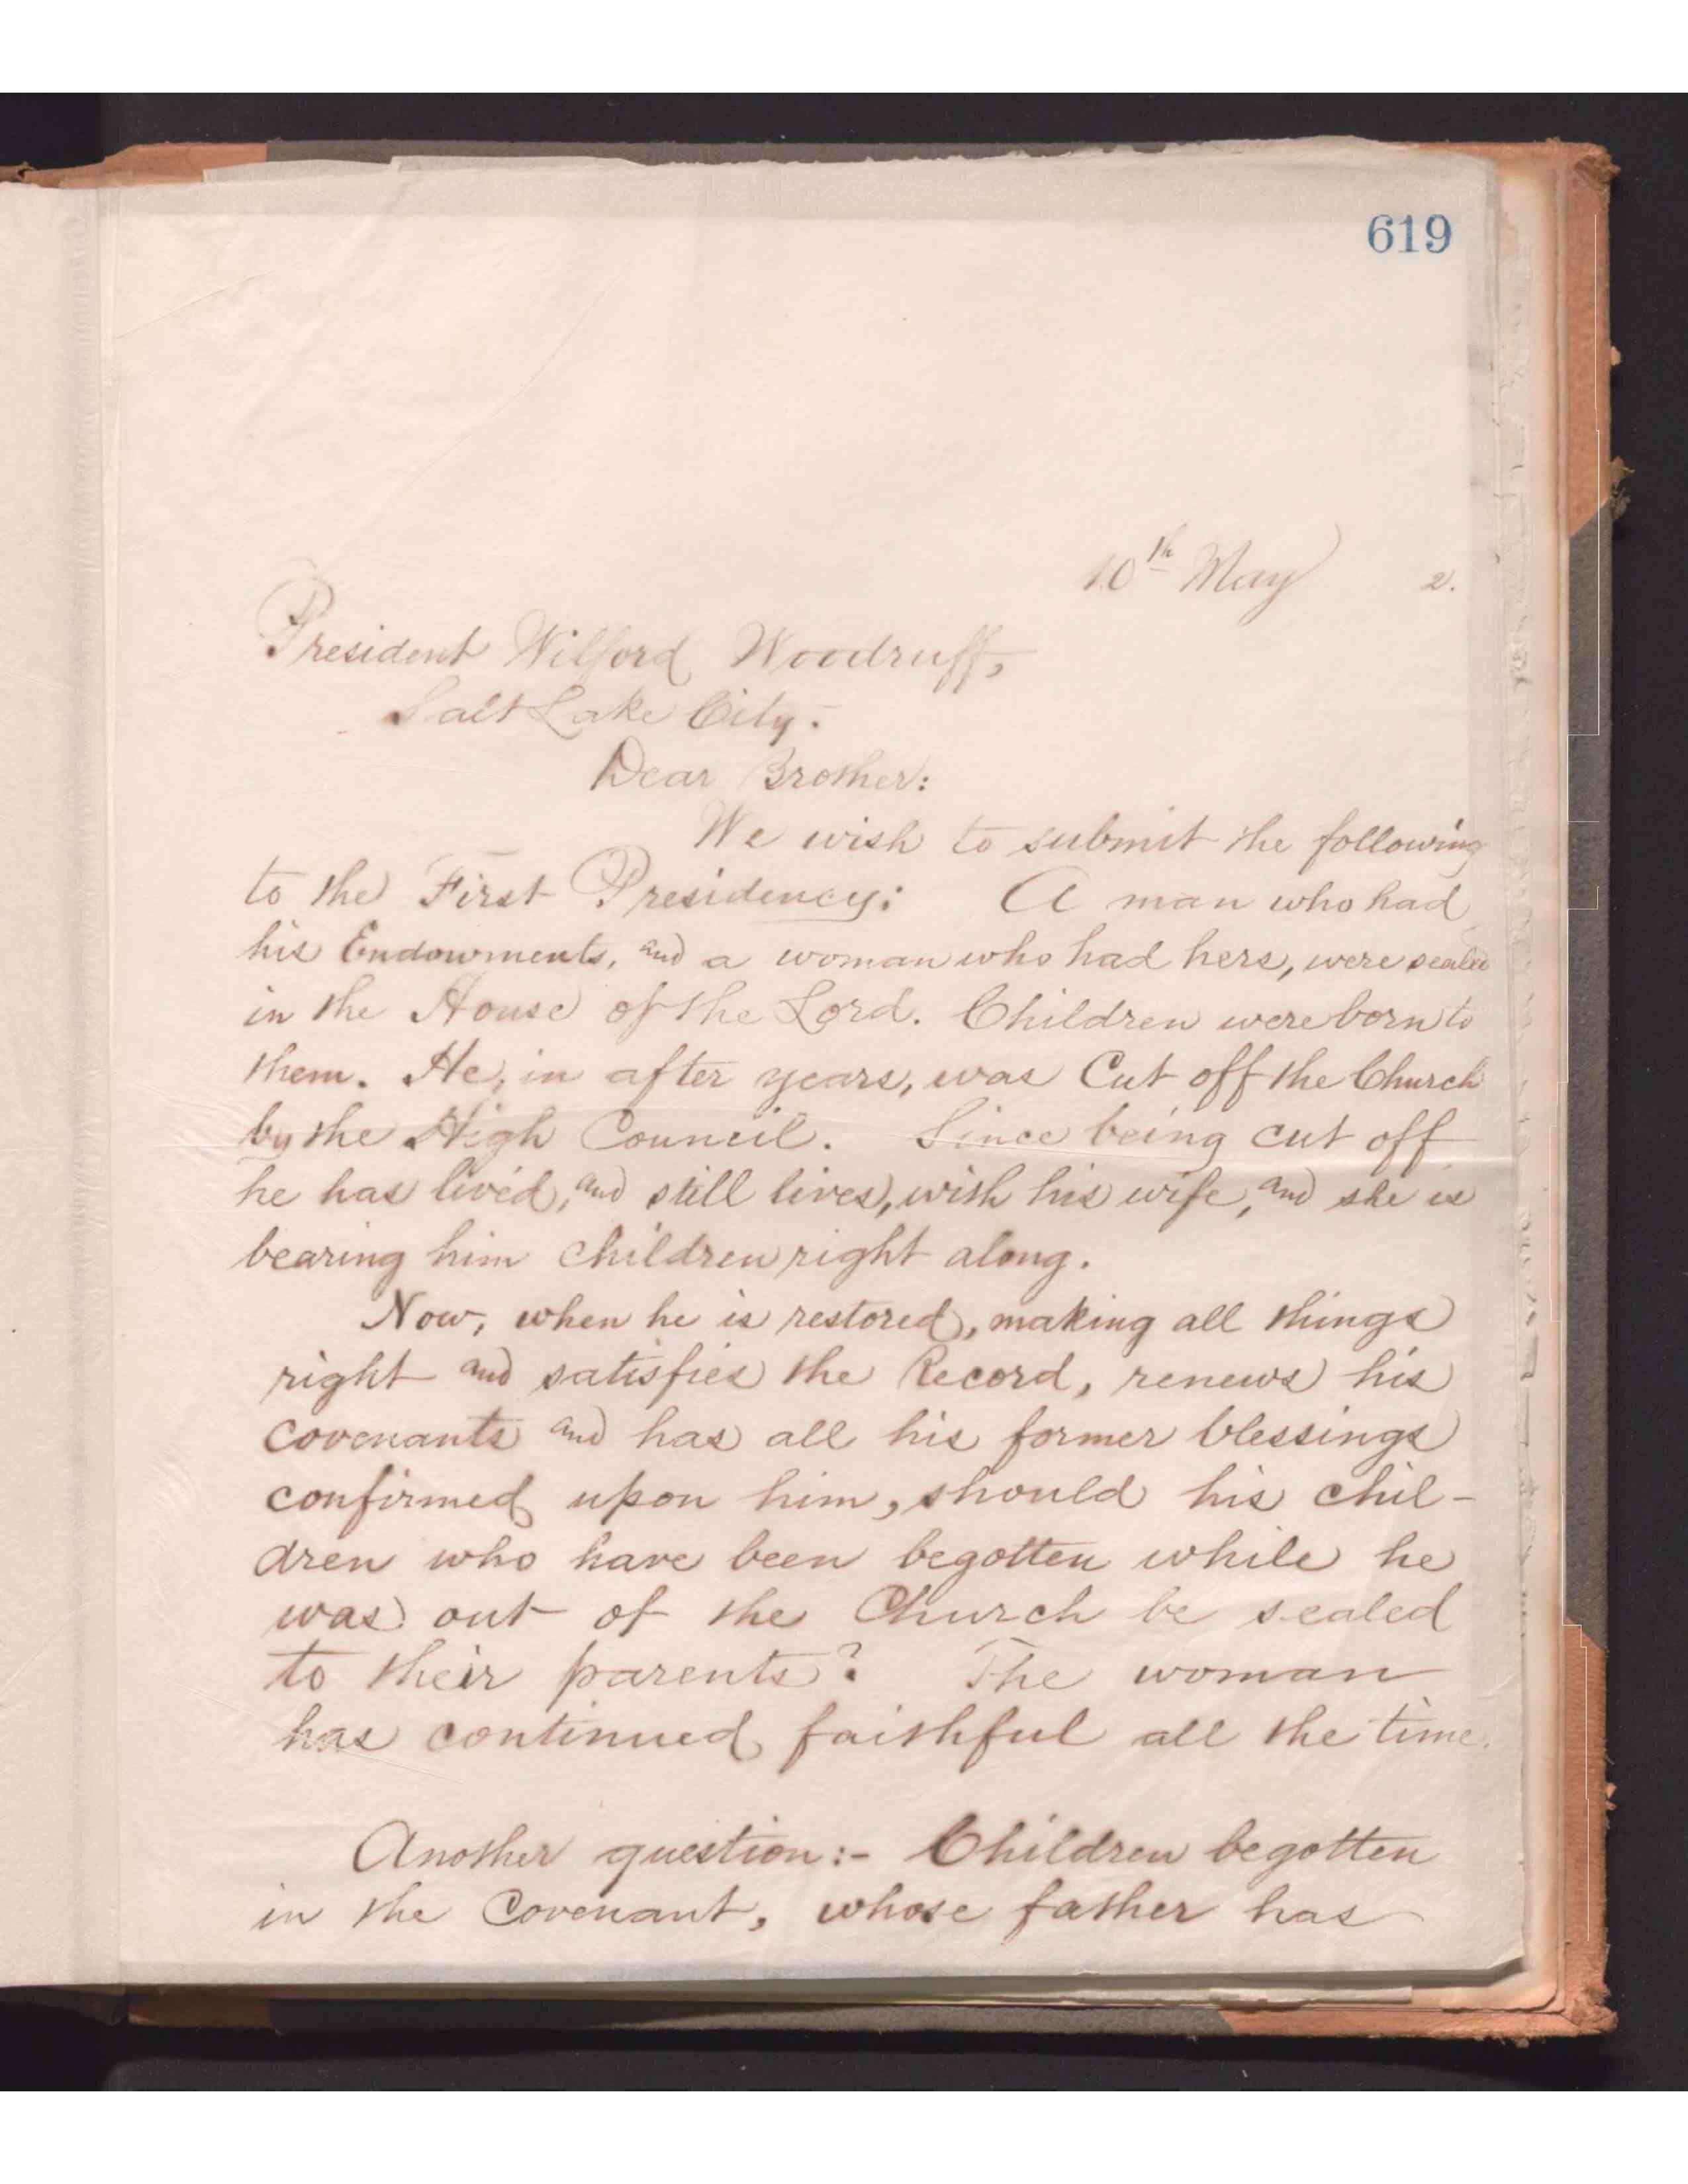 619
10th May 2.
President Wilford Woodruff,
Salt Lake City.
Dear Brother:
We wish to submit the following
to the First Presidency: A man who had
his Endowments, and a woman who had hers, were sealed
in the House of the Lord. Children were born to
them. He, in after years, was Cut off the Church
by the High Council. Since being cut off
he has lived, and still lives, with his wife, and she is
bearing him children right along.
Now, when he is restored, making all things
right and satisfies the Record, renews his
covenants and has all his former blessings
confirmed upon him, should his chil-
dren who have been begotten while he
was out of the Church be sealed
to their parents? The woman
has continued faithful all the time.
Another question:- Children begotten
in the Covenant, whose father has